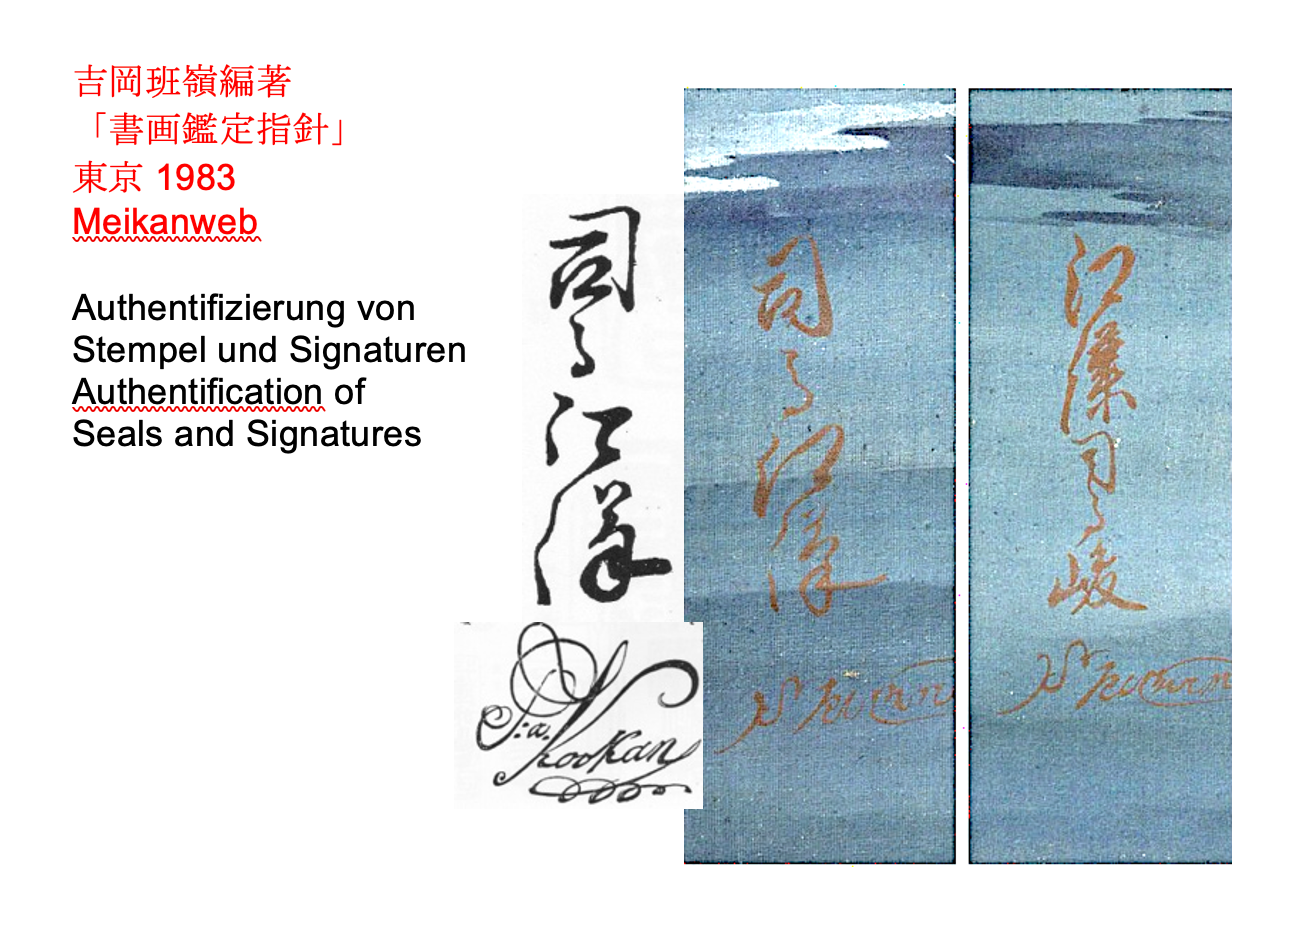 吉岡班嶺編著
「書画鑑定指針」
東京 1983
Meikanweb
Authentifizierung von
Stempel und Signaturen
Authentification of
Seals and Signatures
司馬江漢
S:a. Kookan
司馬江漢
江漢司馬峻